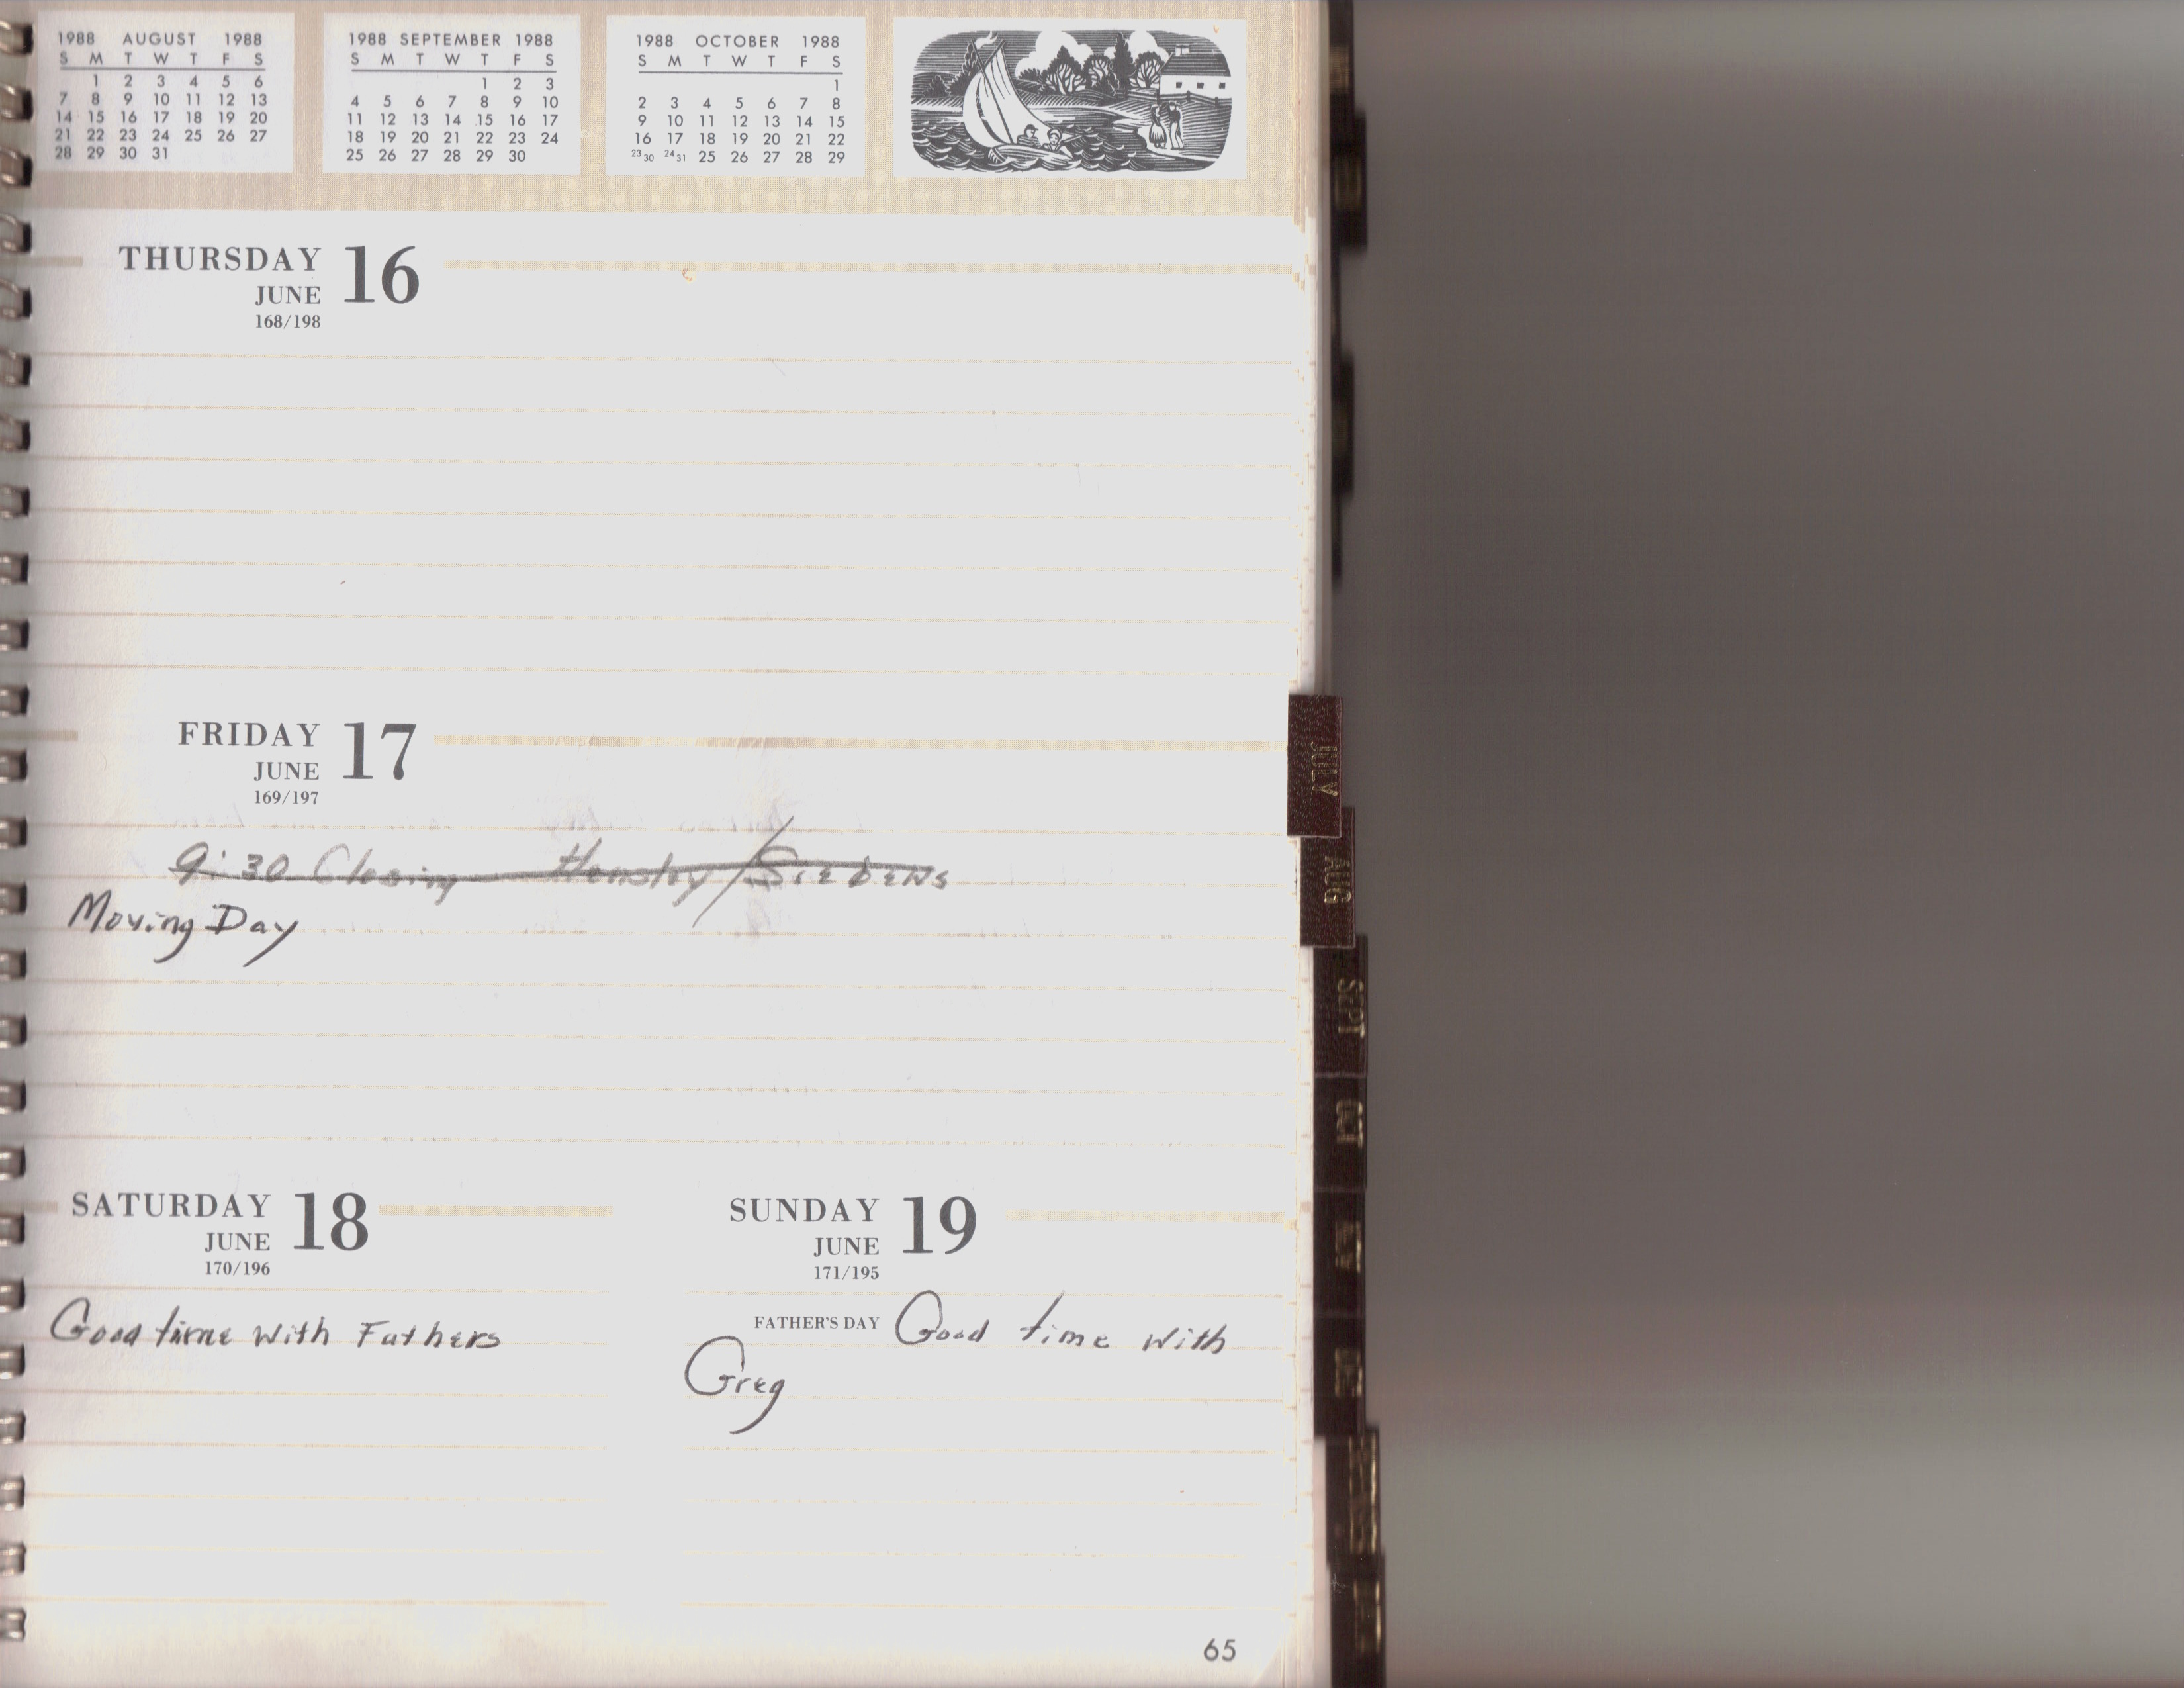 1988 AUGUST 1988
S M T W T F S
1 2 3 4 5 6
7 8 9 10 11 12 13
14 15 16 17 18 19 20
21 22 23 24 25 26 27
28 29 30 31
1988 SEPTEMBER 1988
S M T W T F S
1 2 3
4 5 6 7 8 9 10
11 12 13 14 15 16 17
18 19 20 21 22 23 24
25 26 27 28 29 30
1988 OCTOBER 1988
S M T W T F S
1
2 3 4 5 6 7 8
9 10 11 12 13 14 15
16 17 18 19 20 21 22
23 30 24 31 25 26 27 28 29
THURSDAY 16
JUNE
168/198
FRIDAY 17
JUNE
169/197
9:30 Closing Hensley/Siebens
Moving Day
SATURDAY 18
JUNE
170/196
Good time with Fathers
SUNDAY 19
JUNE
171/195
FATHER'S DAY Good time with
Greg
65
JULY
AUG
SEPT
OCT